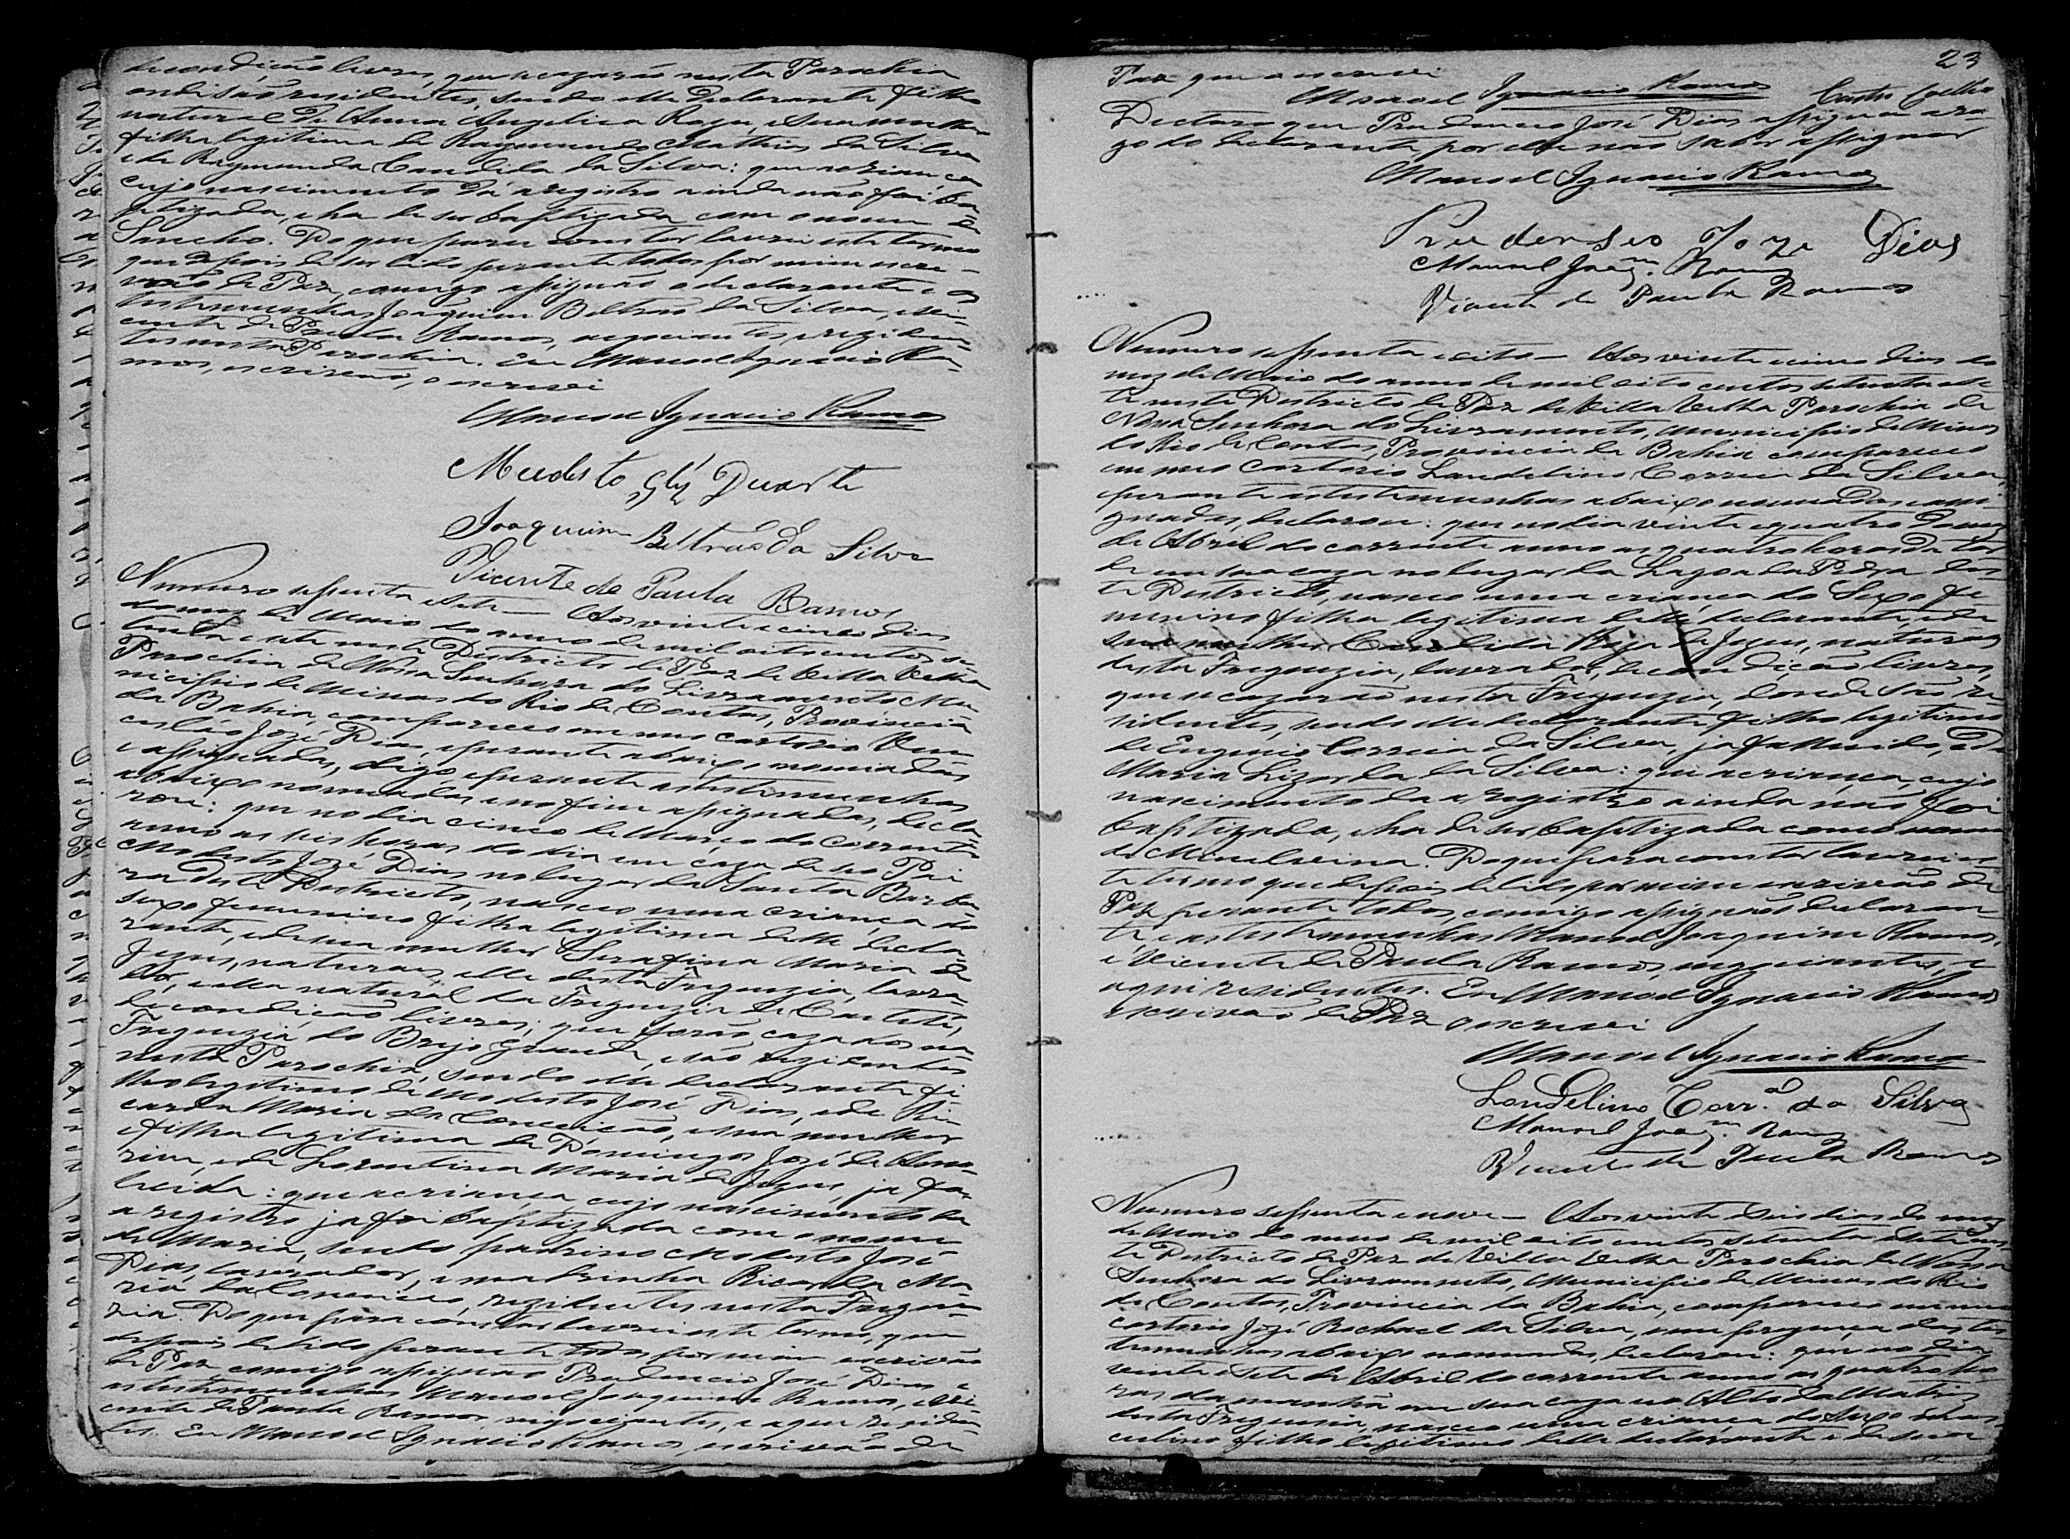 de condição livres, que se cazarão nesta Parochia
onde são residentes, sendo elle Declarante filho
natural de Anna Angelica Roza, e sua mulher
filha legitima de Raymundo Mathias da Silva
e de Raymunda Candida da Silva: que a criança
cujo nascimento dá a registro ainda não foi ba-
ptizada, e ha de ser baptizada com o nome de
Sancho. Do que para constar lavrei este termo
que depois de ser lido perante todos por mim escri-
vão de Paz, comigo assignão o declarante e as
testemunhas Joaquim Beltrão da Silva, e Vi-
cente de Paula Ramos, negociantes, e rezidem-
tes nesta Parochia. Eu Manoel Ignacio Ra-
mos, escrivão, o escrevi
Manoel Ignacio Ramos
Muedesto Glz Duarte
Joaquim Beltrão da Silva
Vicente de Paula Ramos
Numero sessenta e sete — Aos vinte e cinco dias
do mez de Maio do anno de mil oitocentos se-
tenta e sete neste Districto de Paz de Villa Velha
Parochia de Nossa Senhora do Livramento Mu
nicipio de Minas do Rio de Contas, Provincia
da Bahia, compareceu em meu cartorio
José Dias, e perante abaixo nomiadas
e assignadas, digo, e perante as testemunhas
abaixo nomeadas e no fim assignadas, decla-
rou: que no dia cinco de Março do corrente
anno as seis horas do dia em caza de seo Pai
Modesto José Dias no lugar da Santa Barba-
ra deste Districto, nasceo uma criança do
sexo feminino filha legitima delle decla-
rante, e de sua mulher Serafina Maria de
Jezus, naturaes, elle desta Freguezia, lavra-
dor, e ella natural da Freguezia de Caeteté,
de condição livres; que forão cazados na
Freguezia do Brejo Grande, e são rezidentes
nesta Parochia, sendo elle declarante fi
lho legitimo de Modesto José Dias, e de Ri-
carda Maria da Conceição, e sua mulher
filha legitima de Domingos José de
e de Laurentina Maria de Jezus, ja fa-
lecida: que a criança, cujo nascimento da
a registro, ja foi baptizada com o nome
de Maria, sendo padrino Modesto José
Dias, lavrador, e madrinha Ricarda Ma-
ria da Conceição, rezidentes nesta Fregue-
zia. Do que para constar lavrei este termo, que
depois de lido perante todos por mim escrivão
de Paz, comigo assignão Prudencio José Dias e
as testemunhas Manoel Joaquim Ramos, e Vi-
cente de Paula Ramos, negociantes, e aqui reziden-
tes. Eu Manoel Ignacio Ramos, escrivão de
23
Paz que o escrevi
Manoel Ignacio Ramos
Declaro que Prudencio José Dias assignou a ro-
go do declarante por elle não saber assignar
Manoel Ignacio Ramos
Prudensio Joze Dias
Manoel Joaqm. Ramos
Vicente de Paula Ramos
Numero sessenta e oito — Aos vinte e cinco dias do
mez de Maio do anno de mil oito centos setenta e se
te neste Districto de Paz de Villa Velha Parochia de
Nossa Senhora do Livramento, Municipio de Minas
do Rio de Contas, Provincia da Bahia compareceo
em meu Cartorio Landelino Correia da Silva
perante as testemunhas abaixo nomeadas e assi-
gnadas, declarou: que no dia vinte e quatro do mez
de Abril do corrente anno as quatro horas da tar
de em sua caza no lugar da Lagoa da Pedra des-
te Districto, nasceo uma criança do Sexo fe
menino filha legitima delle declarante, e de
sua mulher Candida Roza de Jezus, naturaes
desta Freguezia, lavrador, de condição livres,
que se cazarão nesta Freguezia, donde são re
sidentes, sendo elle declarante filho legitimo
de Eugenio Correia da Silva, ja fallecido, e de
Maria Lizarda da Silva: que a criança, cujo
nascimento da a registro ainda não foi
baptizada, e ha de ser baptizada com o nome
de Minelvina. Do que para constar lavrei es-
te termo que depois de lido por mim escrivão de
Paz perante todos, comigo assignão declaran-
te e as testemunhas Manoel Joaquim Ramos,
e Vicente de Paula Ramos, negociantes, e
aqui residentes. Eu Manoel Ignacio Ramos
escrivão de Paz o escrevi
Manoel Ignacio Ramos
Landelino Corr.a da Silva
Manoel Joaqm. Ramos
Vicente de Paula Ramos
Numero sessenta e nove — Aos vinte e seis dias do mez
de Maio do anno de mil oito centos setenta e sete nes-
te Districto de Paz de Villa Velha Parochia de Nossa
Senhora do Livramento, Municipio de Minas do Rio
de Contas, Provincia da Bahia, compareceo em meu
cartorio José Rachael da Silva, e em prezença das tes
temunhas abaixo nomeadas, declarou: que no dia
vinte e sete de Abril do corrente anno as quatro ho-
ras da manhã em sua caza no Alto da Matriz
desta Freguesia, nasceo uma criança do sexo mas-
culino filho legitimo delle declarante e de sua